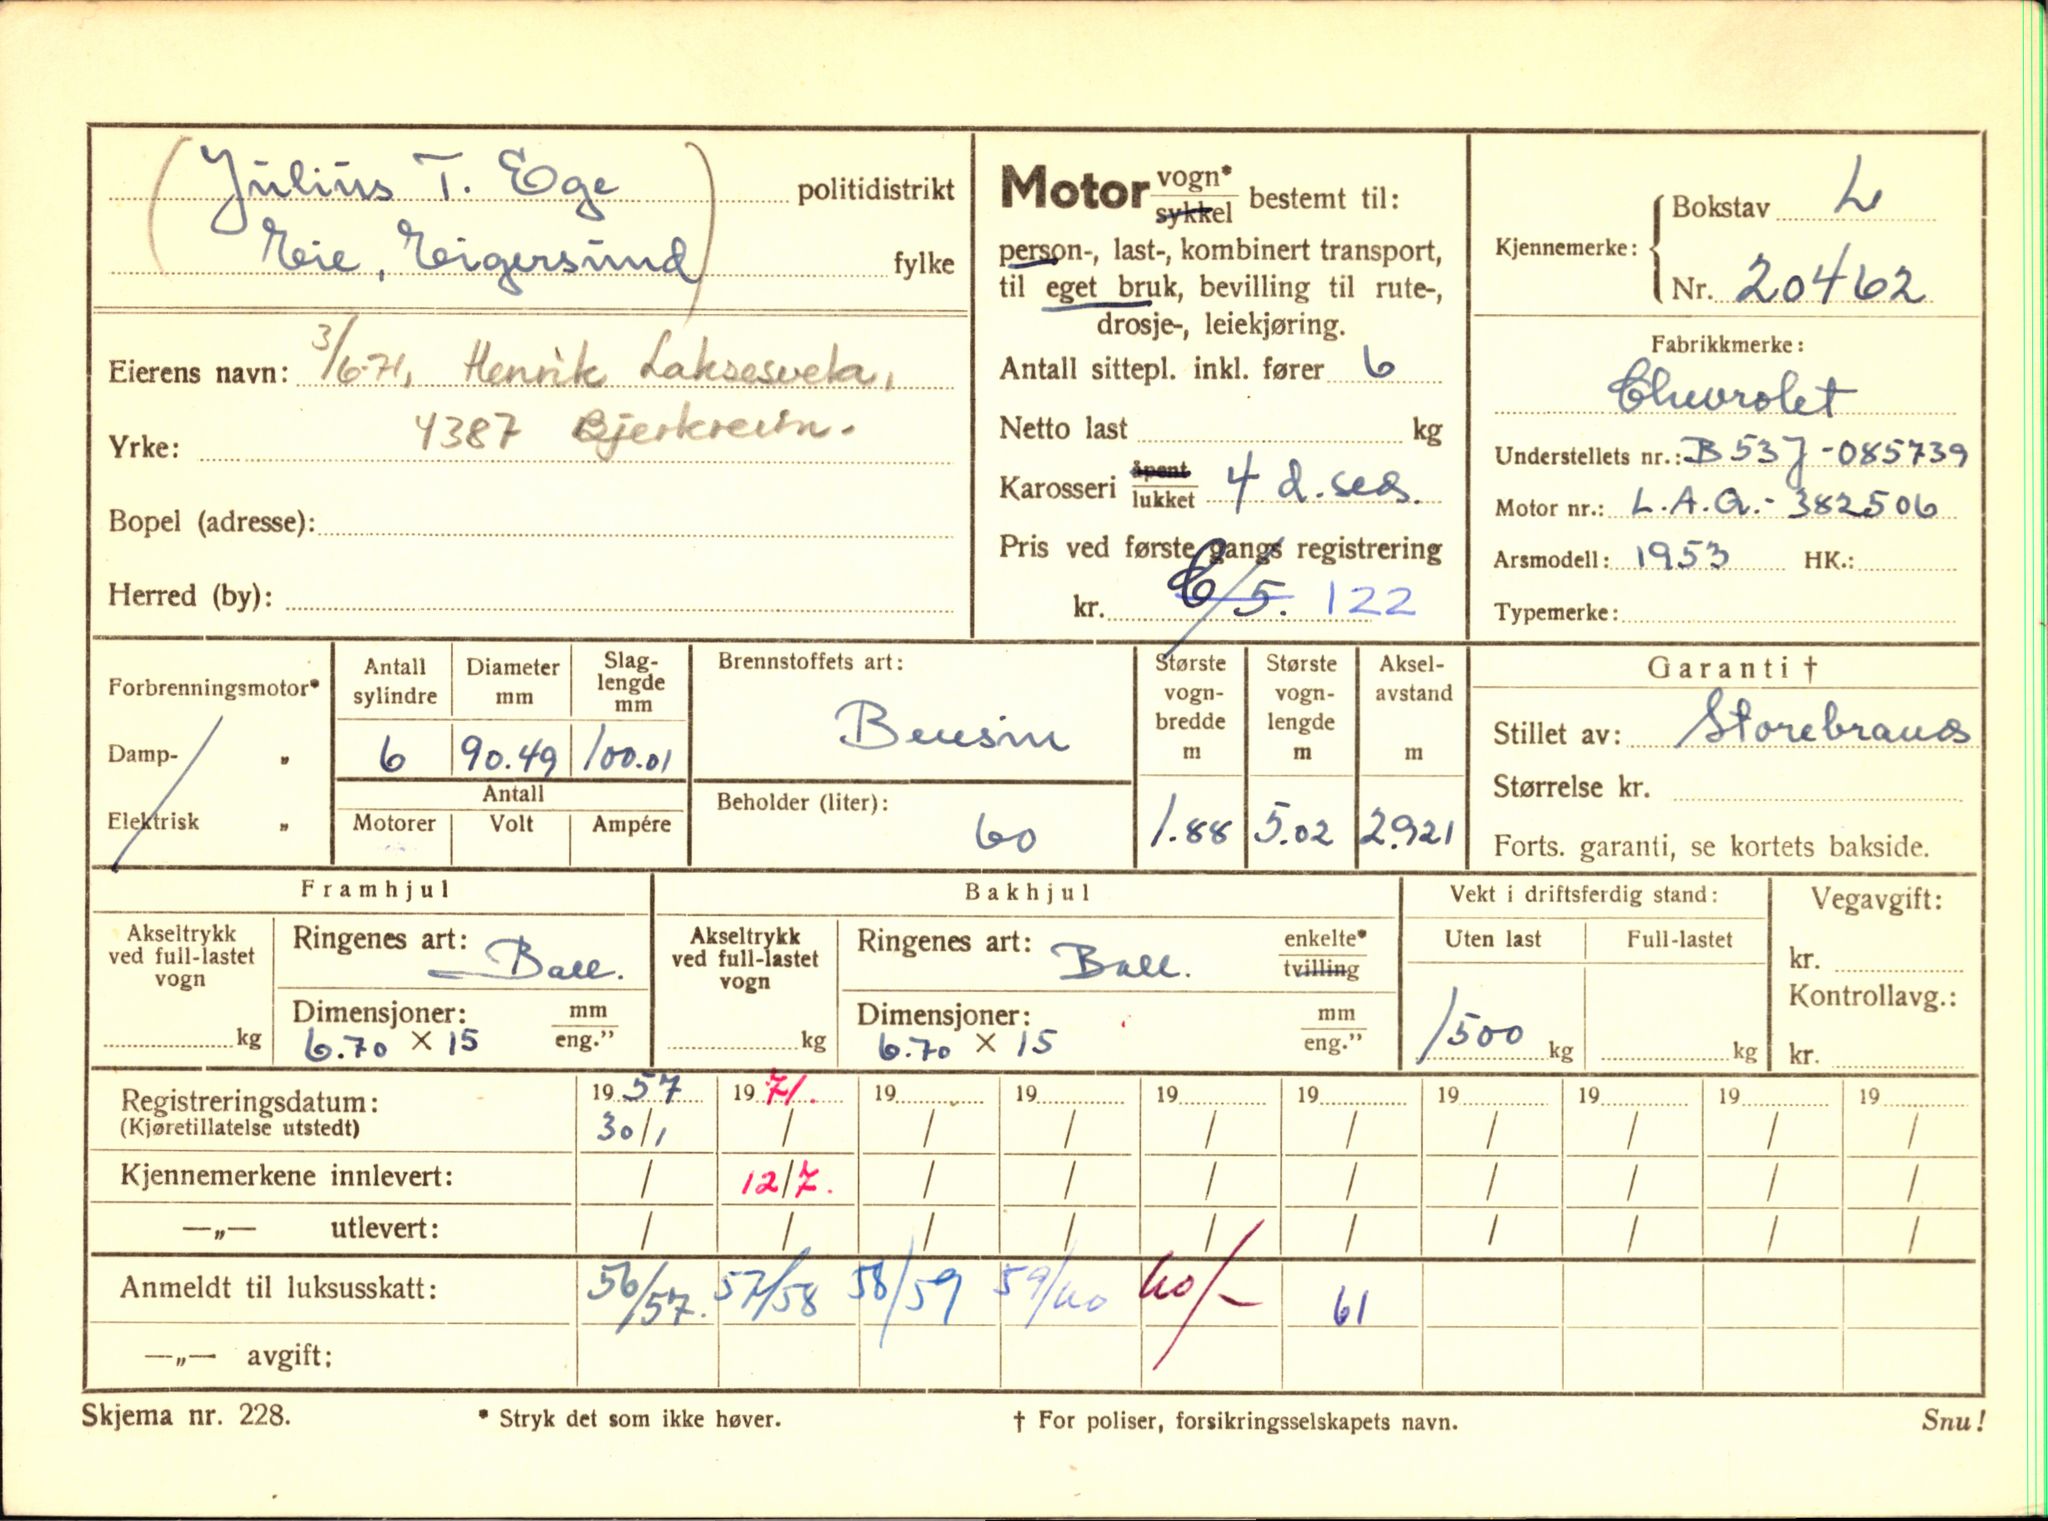 Julius T. Ege politidistrikt
Eie, Eigersund fylke
Eierens navn: 3/6-71, Henrik Laksesvela,
Yrke: 4387 Bjerkreim.
Bopel (adresse):
Herred (by):
Motor vogn* sykkel bestemt til:
person-, last-, kombinert transport,
til eget bruk, bevilling til rute-,
drosje-, leiekjøring.
Antall sittepl. inkl. fører 6
Netto last kg
Karosseri åpent lukket 4 d. sed.
Pris ved første gangs registrering
kr. C/5. 122
Kjennemerke: Bokstav L
Nr. 20462
Fabrikkmerke:
Chevrolet
Understellets nr.: B53J-085739
Motor nr.: L.A.Q.-382506
Arsmodell: 1953 HK.:
Typemerke:
Forbrenningsmotor*
Damp- „
Elektrisk „
Antall sylindre
Diameter mm
Slag-
lengde
mm
6 90.49 100.01
Antall
Motorer Volt Ampére
Brennstoffets art:
Bensin
Beholder (liter):
60
Største
vogn-
bredde
m
1.88
Største
vogn-
lengde
m
5.02
Aksel-
avstand
m
2.921
Garanti †
Stillet av: Storebrand
Størrelse kr.
Forts. garanti, se kortets bakside.
Framhjul
Akseltrykk
ved full-lastet
vogn
kg
Ringenes art: Ball.
Dimensjoner: mm
6.70 × 15 eng.”
Bakhjul
Akseltrykk
ved full-lastet
vogn
kg
Ringenes art: Ball. enkelte* tvilling
Dimensjoner: mm
6.70 × 15 eng.”
Vekt i driftsferdig stand:
Uten last Full-lastet
1500 kg kg
Vegavgift:
kr.
Kontrollavg.:
kr.
Registreringsdatum: 19 57 19 71. 19 19 19 19 19 19 19 19
(Kjøretillatelse utstedt) 30/1 / / / / / / / / /
Kjennemerkene innlevert: / 12/7. / / / / / / / /
—„— utlevert: / / / / / / / / / /
Anmeldt til luksusskatt: 56/57. 57/58 58/59 59/60 60/- 61
—„— avgift:
Skjema nr. 228. * Stryk det som ikke høver. † For poliser, forsikringsselskapets navn. Snu!